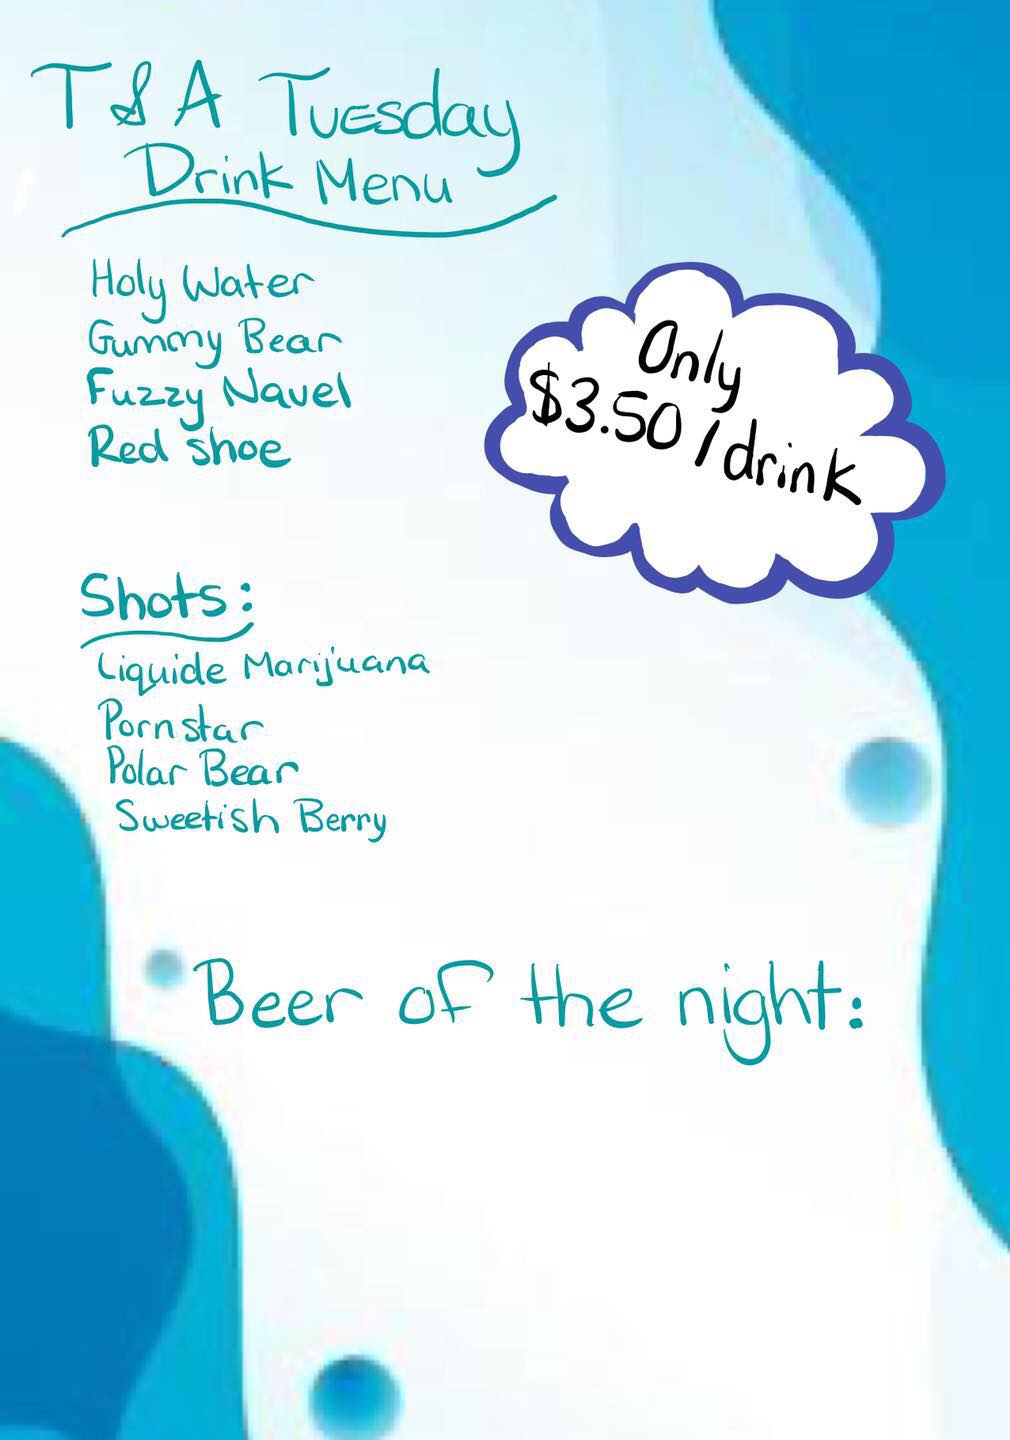 T & A Tuesday
Drink Menu
Holy Water
Gummy Bear
Fuzzy Navel
Red Shoe
Only
$3.50 / drink
Shots:
Liquide Marijuana
Pornstar
Polar Bear
Sweetish Berry
Beer of the night: